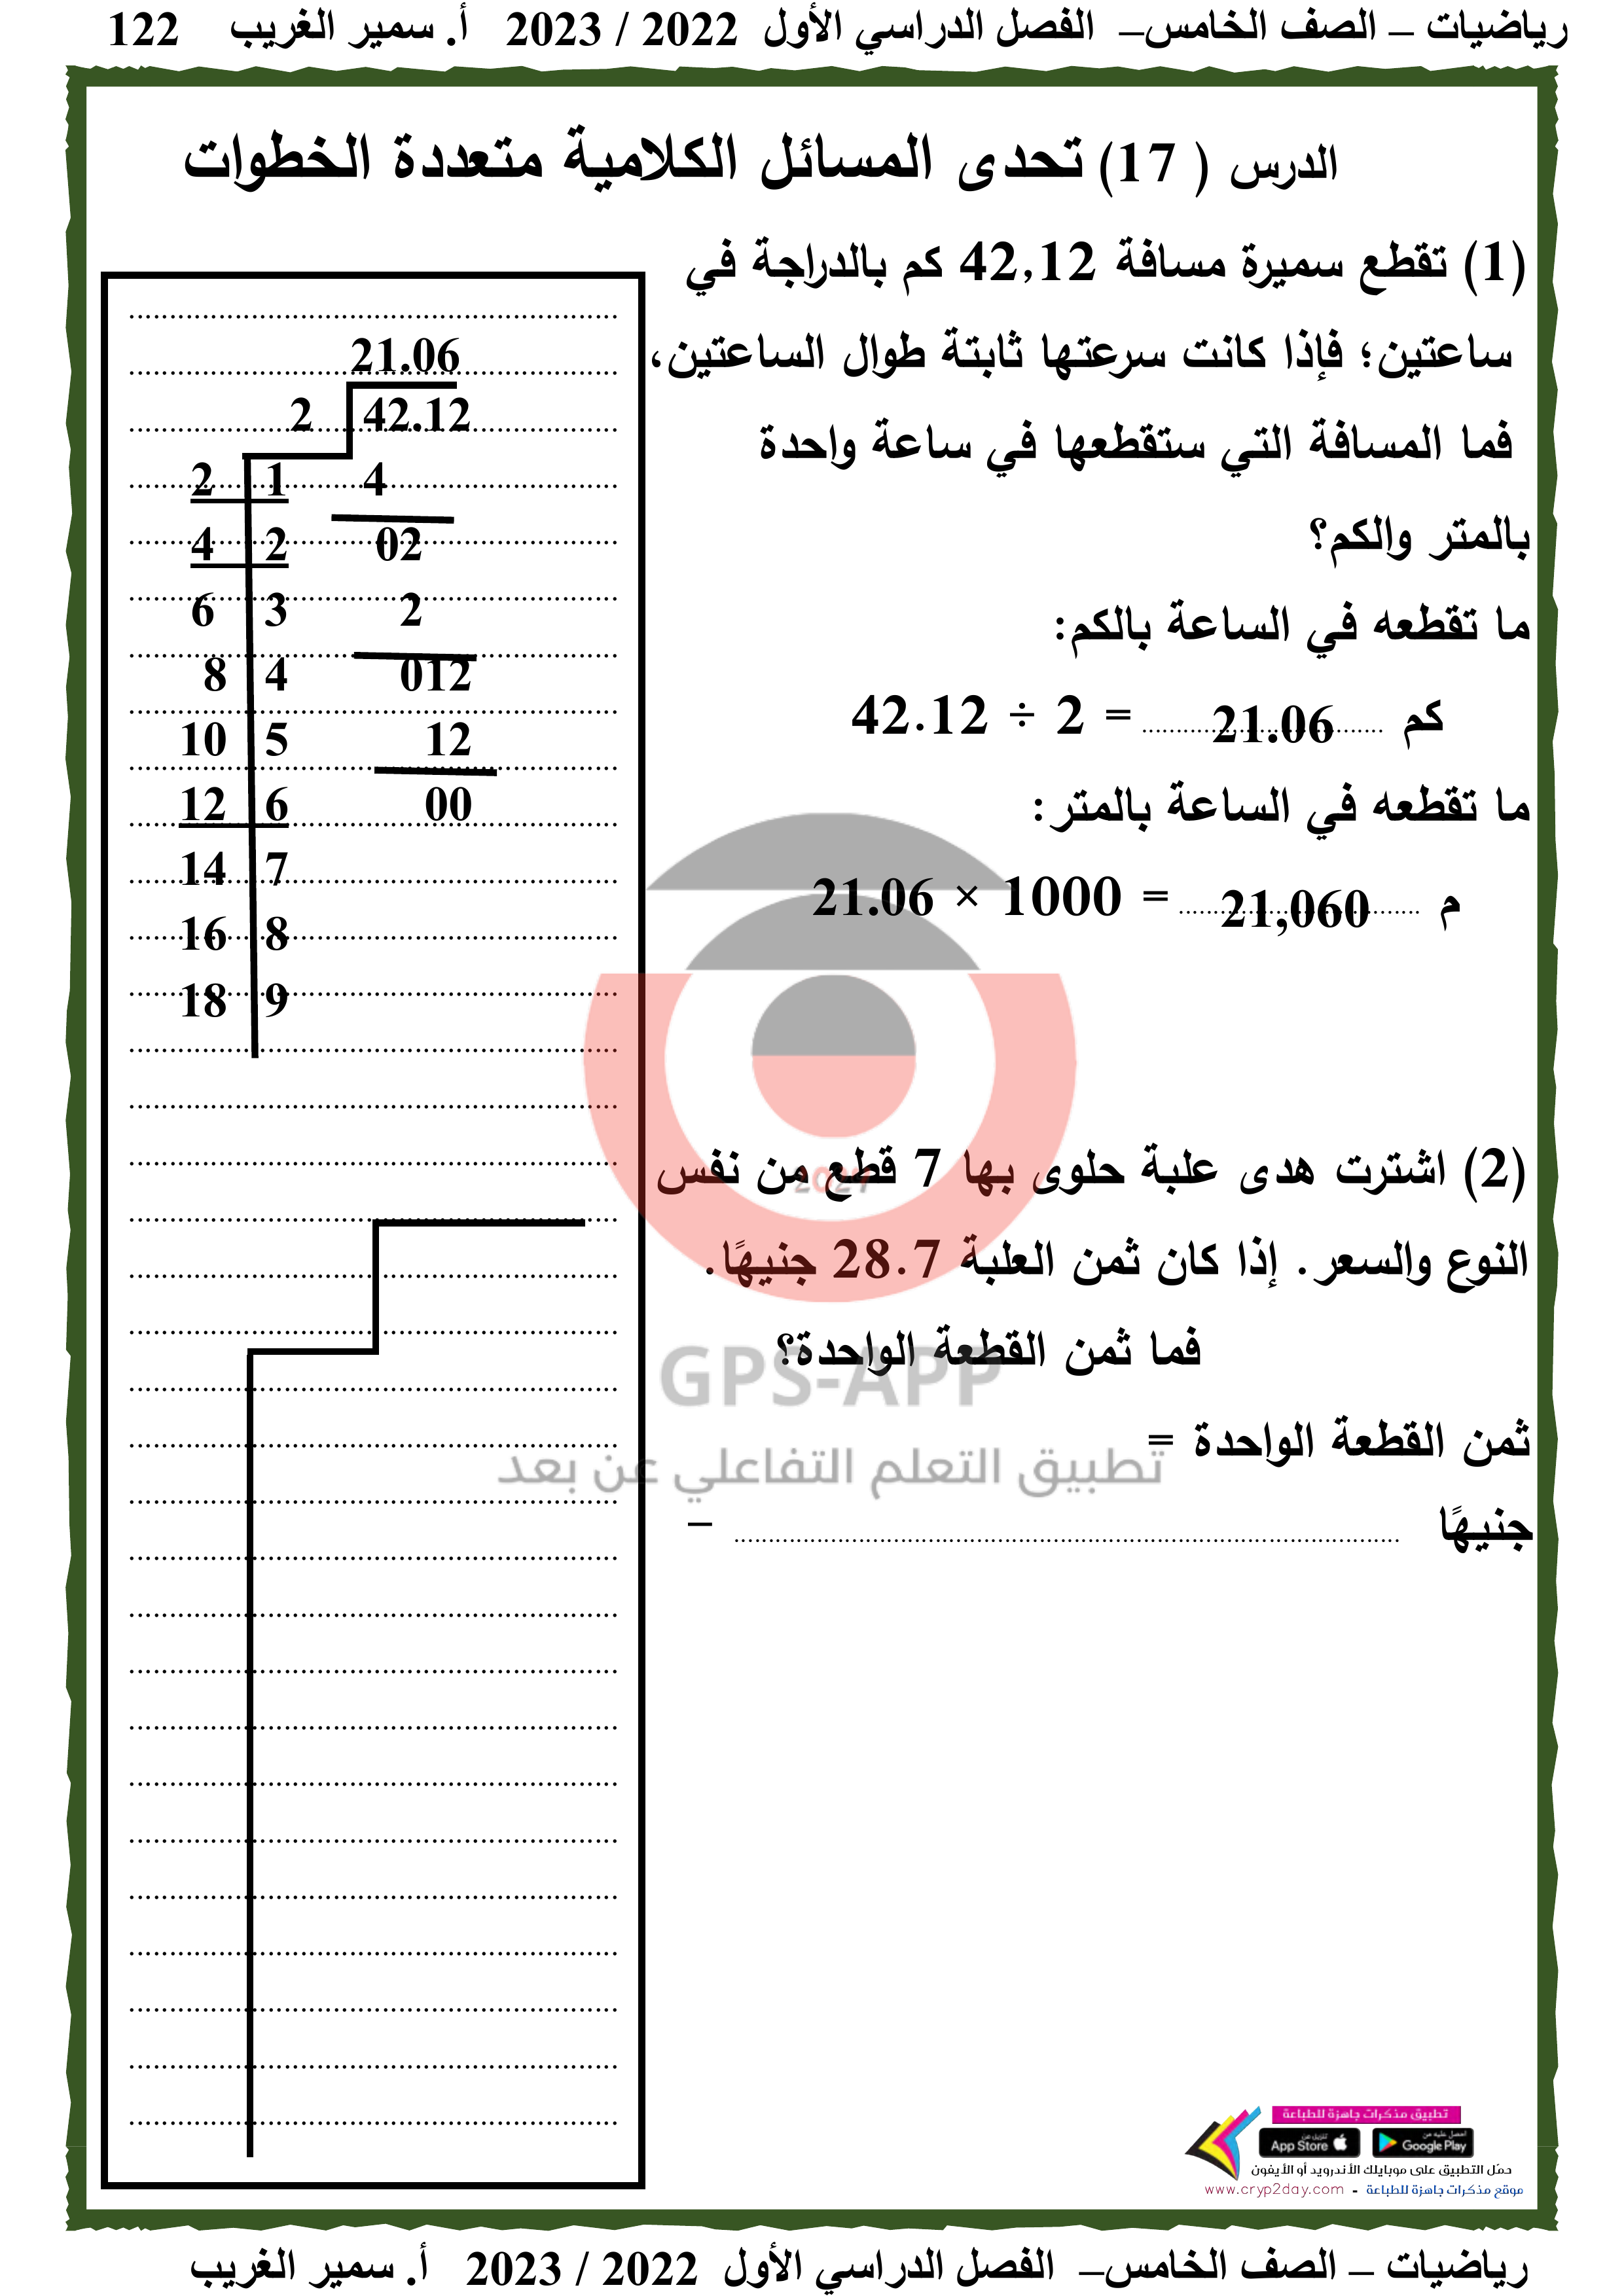 رياضيات – الصف الخامس– الفصل الدراسي الأول 2022 / 2023 أ. سمير الغريب 122
الدرس ( 17) تحدى المسائل الكلامية متعددة الخطوات
(1) تقطع سميرة مسافة 42,12 كم بالدراجة في
ساعتين؛ فإذا كانت سرعتها ثابتة طوال الساعتين،
فما المسافة التي ستقطعها في ساعة واحدة
بالمتر والكم؟
ما تقطعه في الساعة بالكم:
42.12 ÷ 2 = 21.06 كم
ما تقطعه في الساعة بالمتر:
21.06 × 1000 = 21,060 م
21.06
2 42.12
2 1 4
4 2 02
6 3 2
8 4 012
10 5 12
12 6 00
14 7
16 8
18 9
(2) اشترت هدى علبة حلوى بها 7 قطع من نفس
النوع والسعر. إذا كان ثمن العلبة 28.7 جنيهًا.
فما ثمن القطعة الواحدة؟
ثمن القطعة الواحدة =
– جنيهًا
GPS-APP
تطبيق التعلم التفاعلي عن بعد
تطبيق مذكرات جاهزة للطباعة
تنزيل من App Store
احصل عليه من Google Play
حمّل التطبيق على موبايلك الأندرويد أو الأيفون
موقع مذكرات جاهزة للطباعة - www.cryp2day.com
رياضيات – الصف الخامس– الفصل الدراسي الأول 2022 / 2023 أ. سمير الغريب